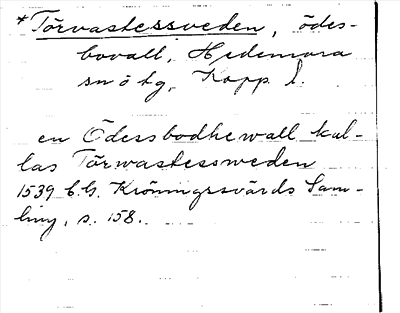 *Törvastessveden, ödes-
bovall, Hedemora
sn o tg, Kopp. l.
en Ödessbodhewall kal-
las Törwastessweden
1539 C.G. Kröningsvärds Sam-
ling, s. 158.